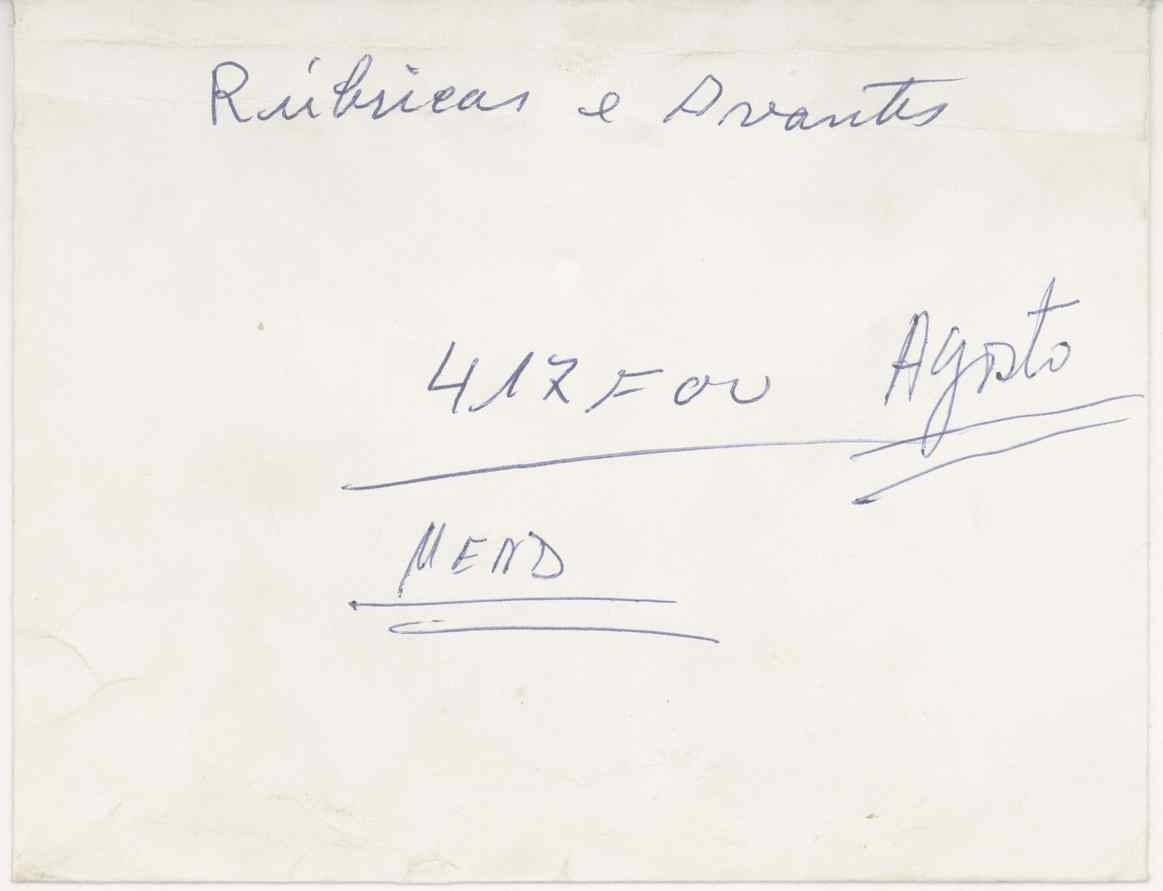 Rúbricas e Avantes
417 F ou Agosto
MEND